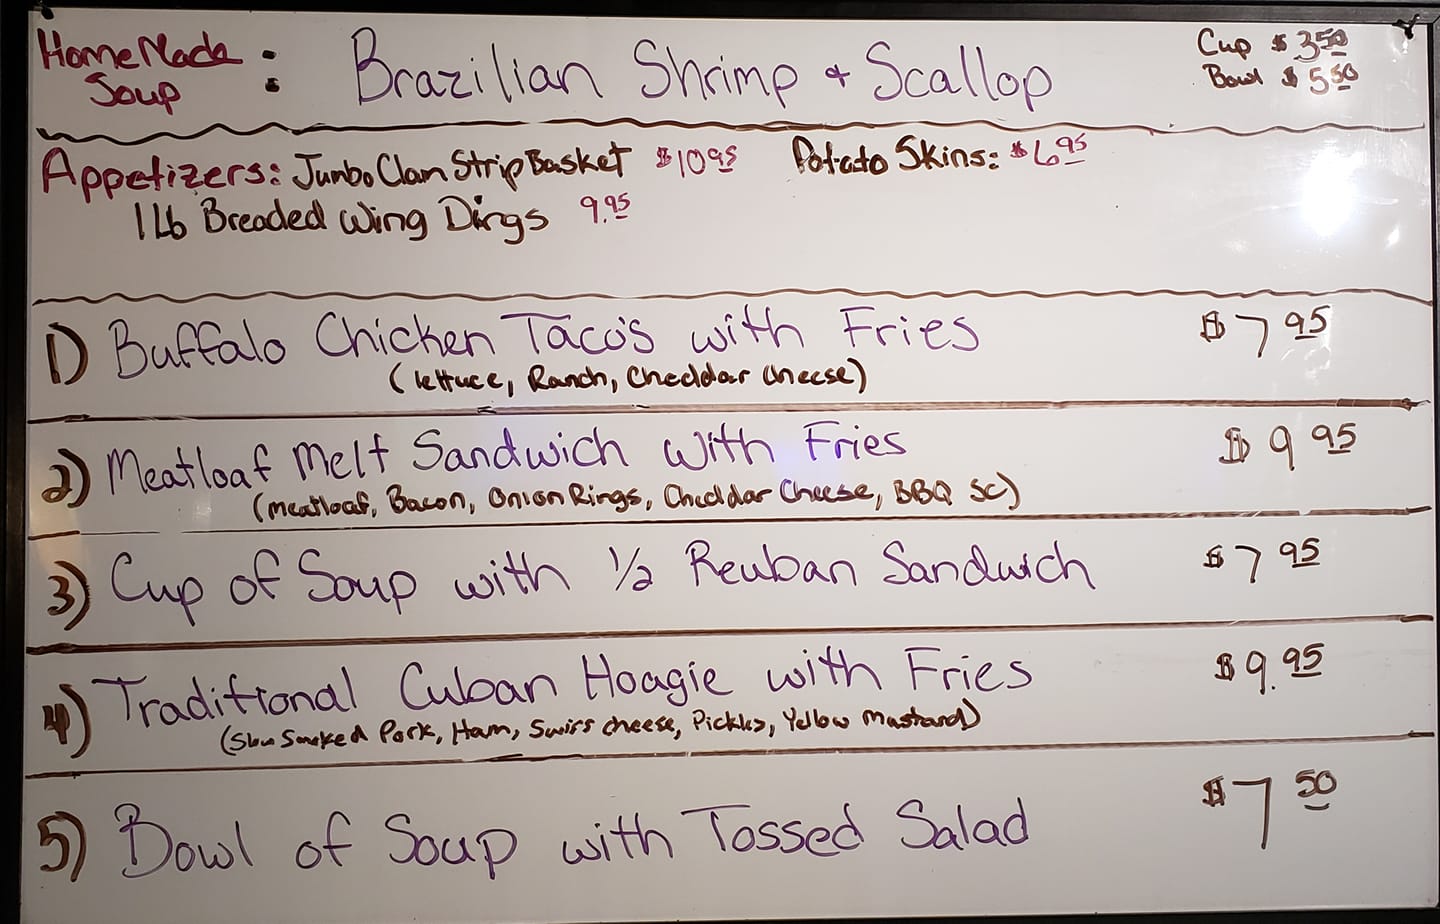 HomeMade Soup : Brazilian Shrimp + Scallop Cup $3.50
Bowl $5.50
Appetizers: Jumbo Clam Strip Basket $10.95 Potato Skins: $6.95
1 Lb Breaded Wing Dings 9.95
1) Buffalo Chicken Taco's with Fries $7.95
(lettuce, Ranch, Cheddar Cheese)
2) Meatloaf Melt Sandwich with Fries $9.95
(meatloaf, Bacon, Onion Rings, Cheddar Cheese, BBQ SC)
3) Cup of Soup with 1/2 Reuban Sandwich $7.95
4) Traditional Cuban Hoagie with Fries $9.95
(Slow Smoked Pork, Ham, Swiss cheese, Pickles, Yellow Mustard)
5) Bowl of Soup with Tossed Salad $7.50